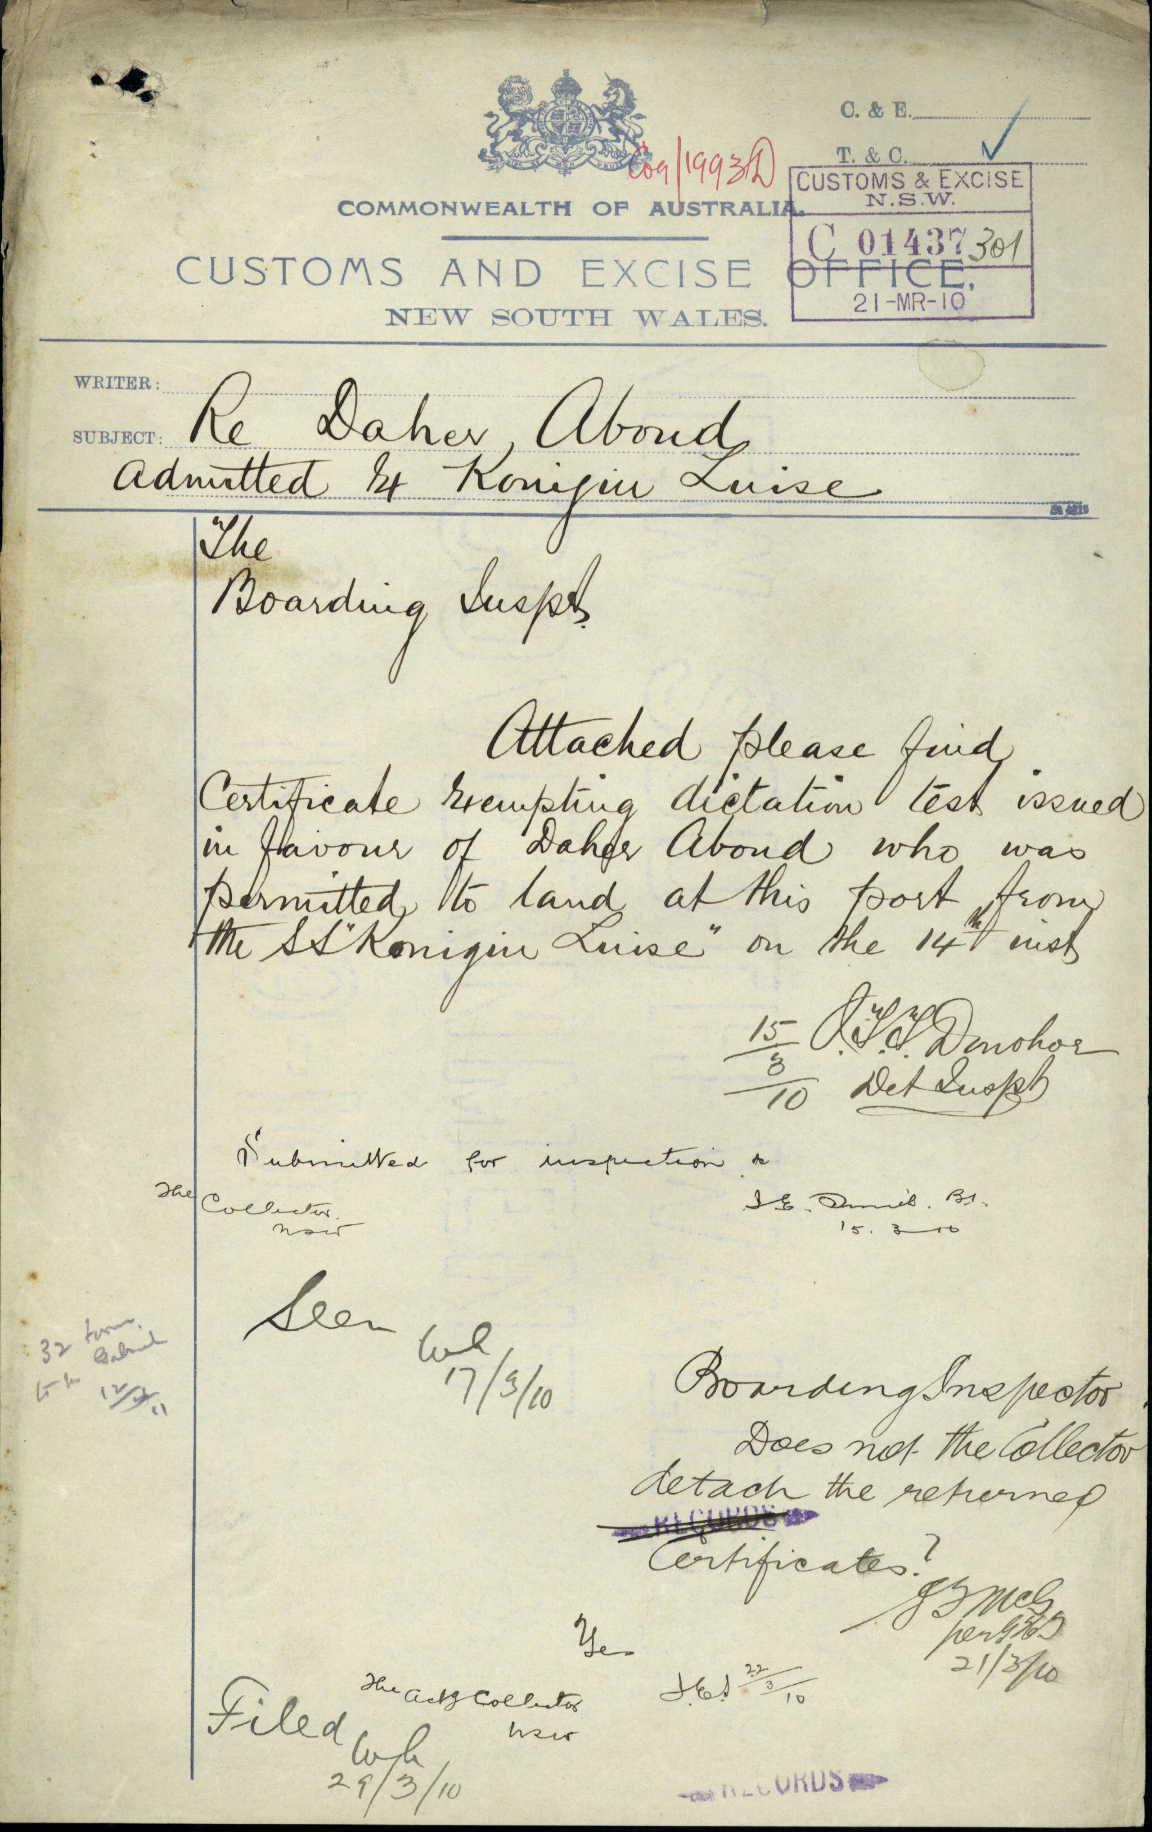 C. & E.
T. & C.
09/1993D
COMMONWEALTH OF AUSTRALIA.
CUSTOMS & EXCISE
N.S.W.
C 01437 301
21-MR-10
CUSTOMS AND EXCISE OFFICE.
NEW SOUTH WALES.
WRITER:
SUBJECT: Re Daher Aboud
Admitted Ex Konigin Luise
The
Boarding Inspt.
Attached please find
Certificate Exempting dictation test issued
in favour of Daher Aboud who was
permitted to land at this port from
the SS "Konigin Luise" on the 14th inst
15/3/10 J.T.T. Donohoe
Det Inspt
Submitted for inspection
The Collector
NSW
B.I.
15.3.10
Seen
17/3/10
32
12/2/11
Boarding Inspector
Does not the Collector
detach the returned
RECORDS
Certificates?
21/3/10
Yes
22/3/10
The Actg Collector
NSW
Filed
29/3/10
RECORDS